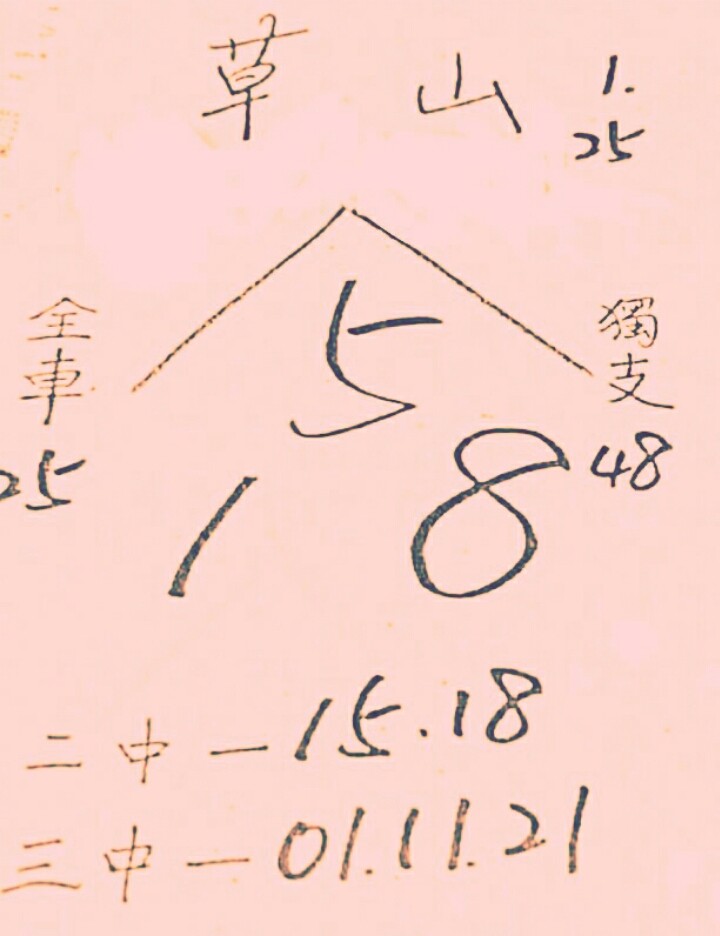 草 山 1.
25
5
全車 獨支
25 48
1 8
二中一15.18
三中一01.11.21